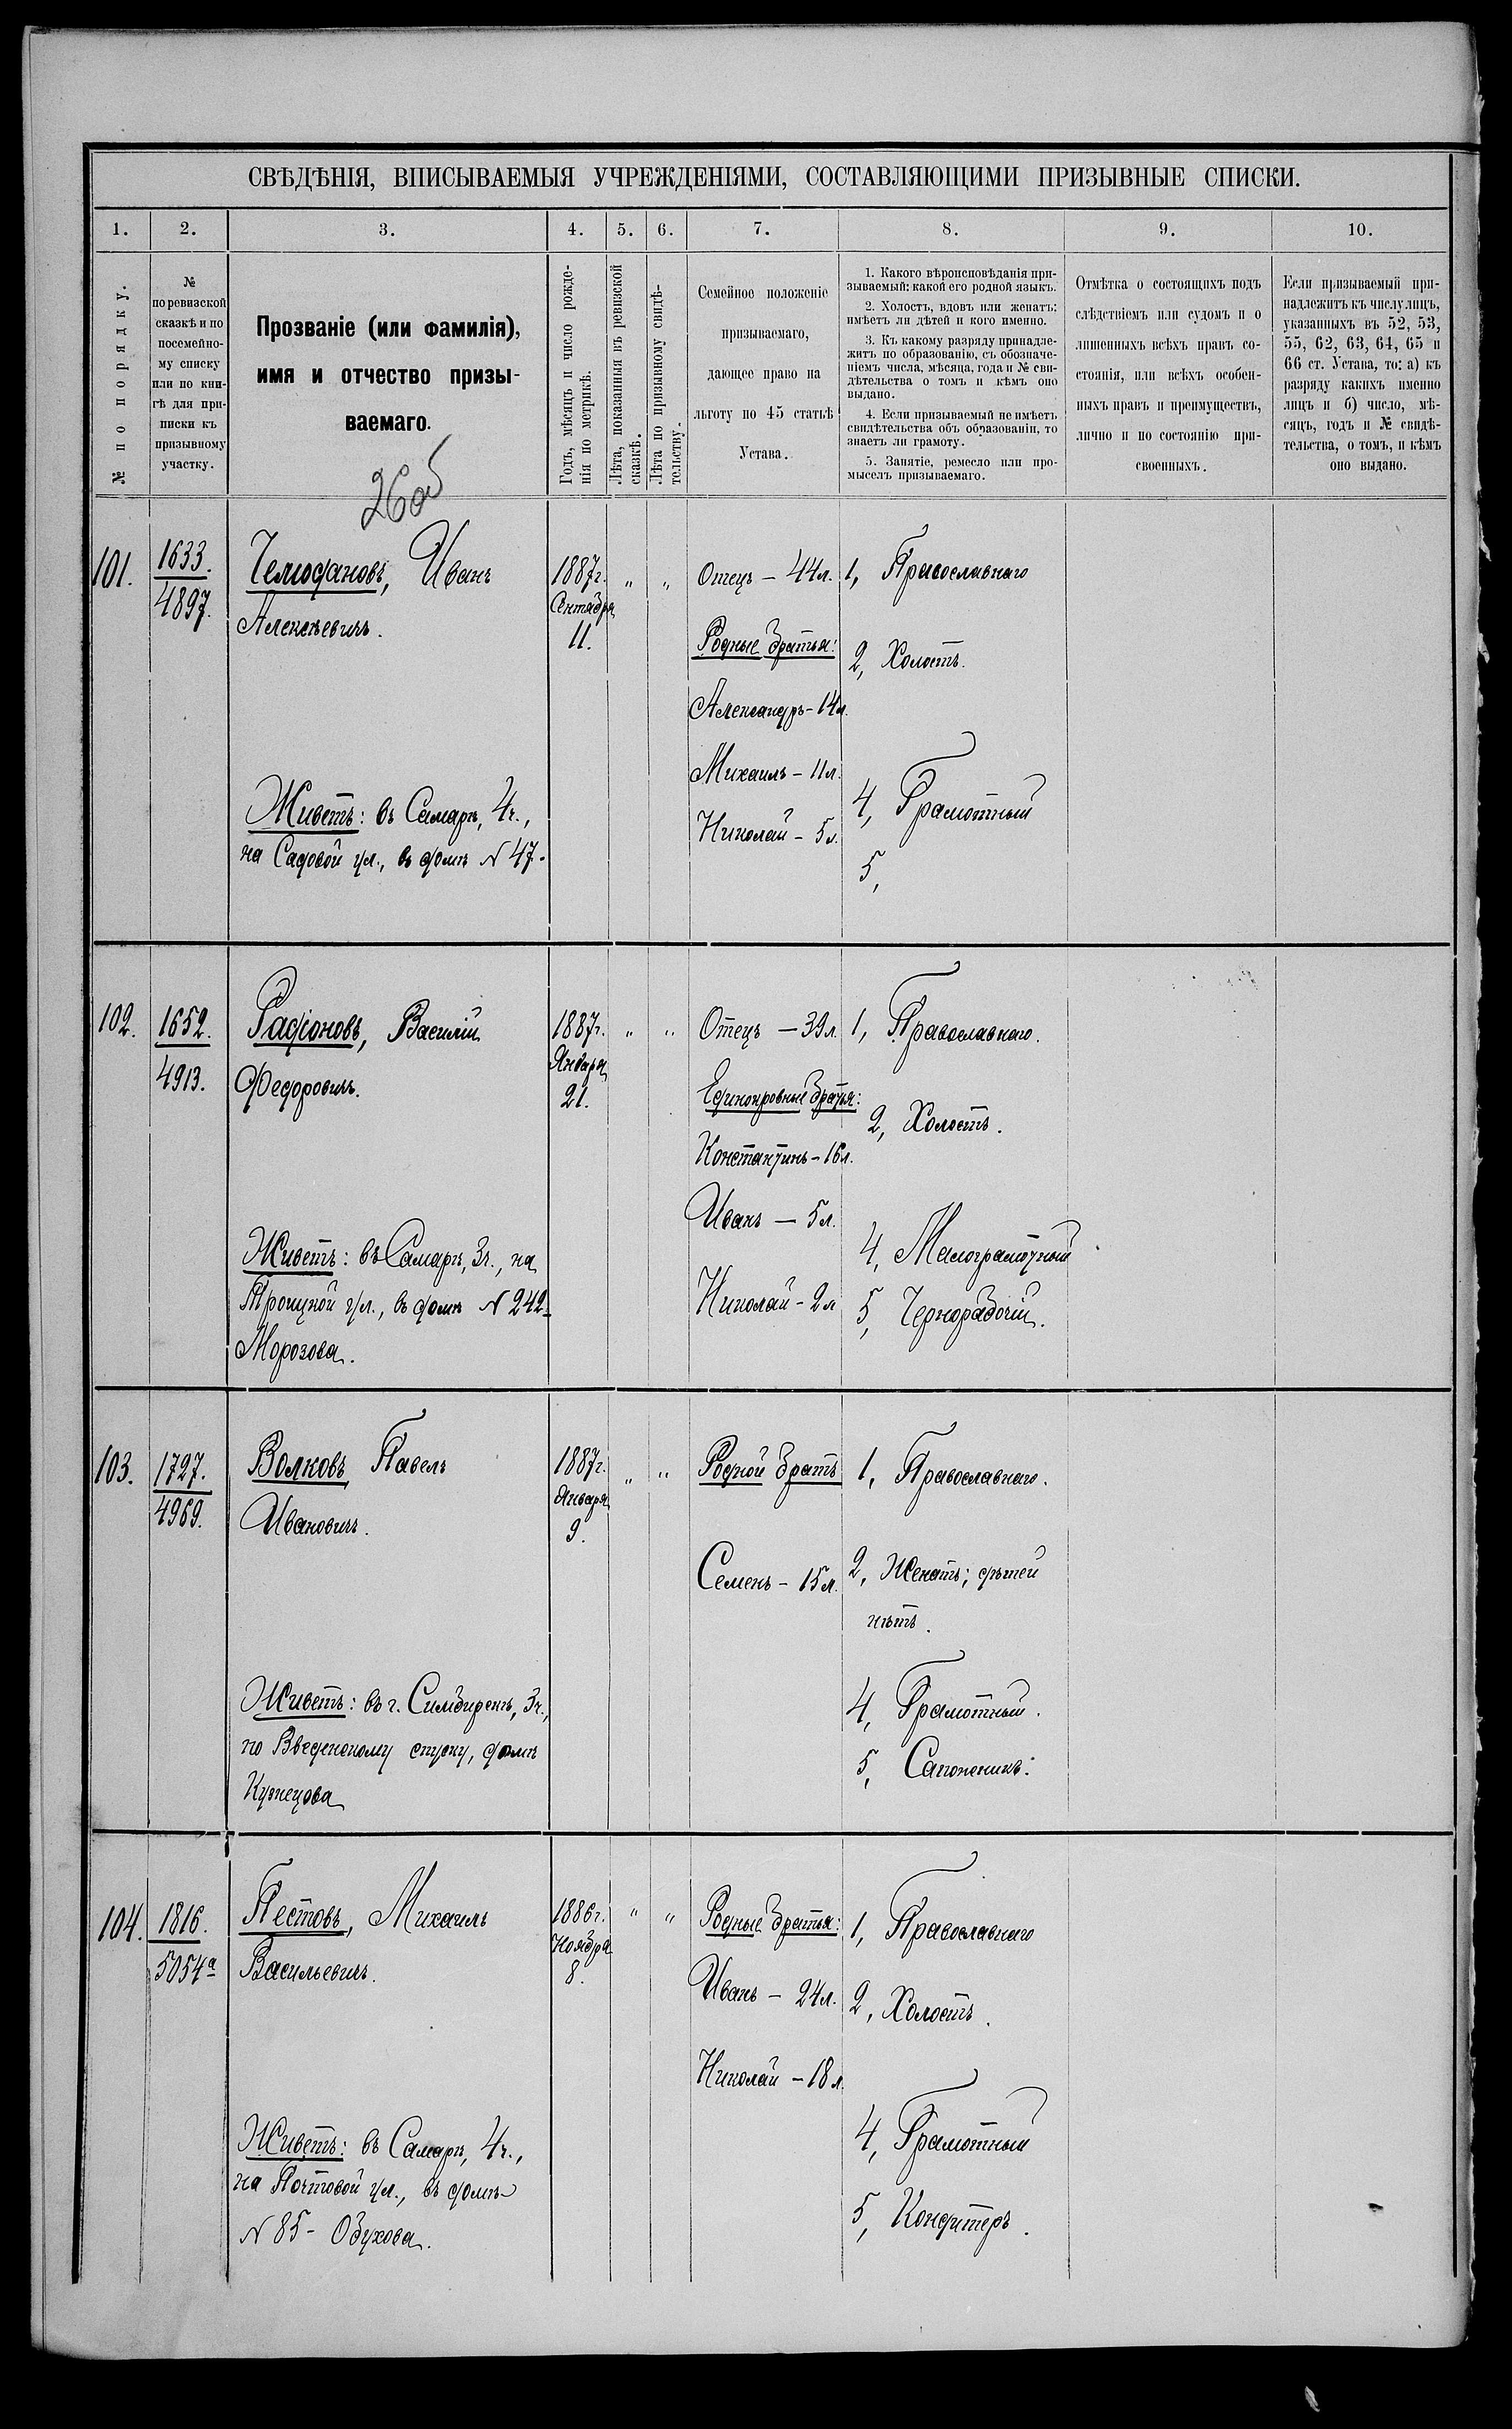 СВѢДѢНІЯ, ВПИСЫВАЕМЫЯ УЧРЕЖДЕНІЯМИ, СОСТАВЛЯЮЩИМИ ПРИЗЫВНЫЕ СПИСКИ.
1. 2. 3. 4. 5. 6. 7. 8. 9. 10.
№ по порядку.
№
по ревизской
сказкѣ и по
посемейно-
му списку
или по кни-
гѣ для при-
писки къ
призывному
участку.
Прозваніе (или фамилія),
имя и отчество призы-
ваемаго.
Годъ, мѣсяцъ и число рожде-
нія по метрикѣ.
Лѣта, показанныя въ ревизской
сказкѣ.
Лѣта по призывному свидѣ-
тельству.
Семейное положеніе
призываемаго,
дающее право на
льготу по 45 статьѣ
Устава.
1. Какого вѣроисповѣданія при-
зываемый: какой его родной языкъ.
2. Холостъ, вдовъ или женатъ:
имѣетъ ли дѣтей и кого именно.
3. Къ какому разряду принадле-
житъ по образованію, съ обозначе-
ніемъ числа, мѣсяца, года и № сви-
дѣтельства о томъ и кѣмъ оно
выдано.
4. Если призываемый не имѣетъ
свидѣтельства объ образованіи, то
знаетъ ли грамоту.
5. Занятіе, ремесло или про-
мыселъ призываемаго.
Отмѣтка о состоящихъ подъ
слѣдствіемъ или судомъ и о
лишенныхъ всѣхъ правъ со-
стоянія, или всѣхъ особен-
ныхъ правъ и преимуществъ,
лично и по состоянію при-
своенныхъ.
Если призываемый при-
надлежитъ къ числу лицъ,
указанныхъ въ 52, 53,
55, 62, 63, 64, 65 и
66 ст. Устава, то: а) къ
разряду какихъ именно
лицъ и б) число, мѣ-
сяцъ, годъ и № свидѣ-
тельства, о томъ, и кѣмъ
оно выдано.
26об
101.
1633.
4897.
Челюфановъ, Иванъ
Алексѣевичъ.
Живетъ: въ Самарѣ, 4ч.,
на Садовой ул., въ домѣ №47.
1887г.
Сентября
11.
"
"
Отецъ – 44л.
Родные братья:
Александръ – 14л.
Михаилъ – 11л.
Николай – 5л.
1, Православнаго
2, Холостъ.
4, Грамотный
5,
102.
1652.
4913.
Радіоновъ, Василій
Федоровичъ.
Живетъ: въ Самарѣ, 3ч., на
Троицкой ул., въ домѣ №242–
Морозова.
1887г.
Января
21.
"
"
Отецъ – 39л.
Единокровные братья:
Константинъ – 16л.
Иванъ – 5л.
Николай – 2л
1, Православнаго.
2, Холостъ.
4, Малограмотный
5, Чернорабочій.
103.
1727.
4969.
Волковъ, Павелъ
Ивановичъ.
Живетъ: въ г. Симбирскѣ, 3ч.,
по Введенскому спуску, домъ
Кузнецова
1887г.
Января
9.
"
"
Родной братъ
Семенъ – 15л.
1, Православнаго.
2, Женатъ; дѣтей
нѣтъ.
4, Грамотный.
5, Сапожникъ.
104.
1816.
5054а
Пестовъ, Михаилъ
Васильевичъ.
Живетъ: въ Самарѣ, 4ч.,
на Почтовой ул., въ домѣ
№85– Обухова.
1886г.
Ноября
8.
"
"
Родные братья:
Иванъ – 24л.
Николай – 18л.
1, Православнаго
2, Холостъ.
4, Грамотный
5, Кондитеръ.